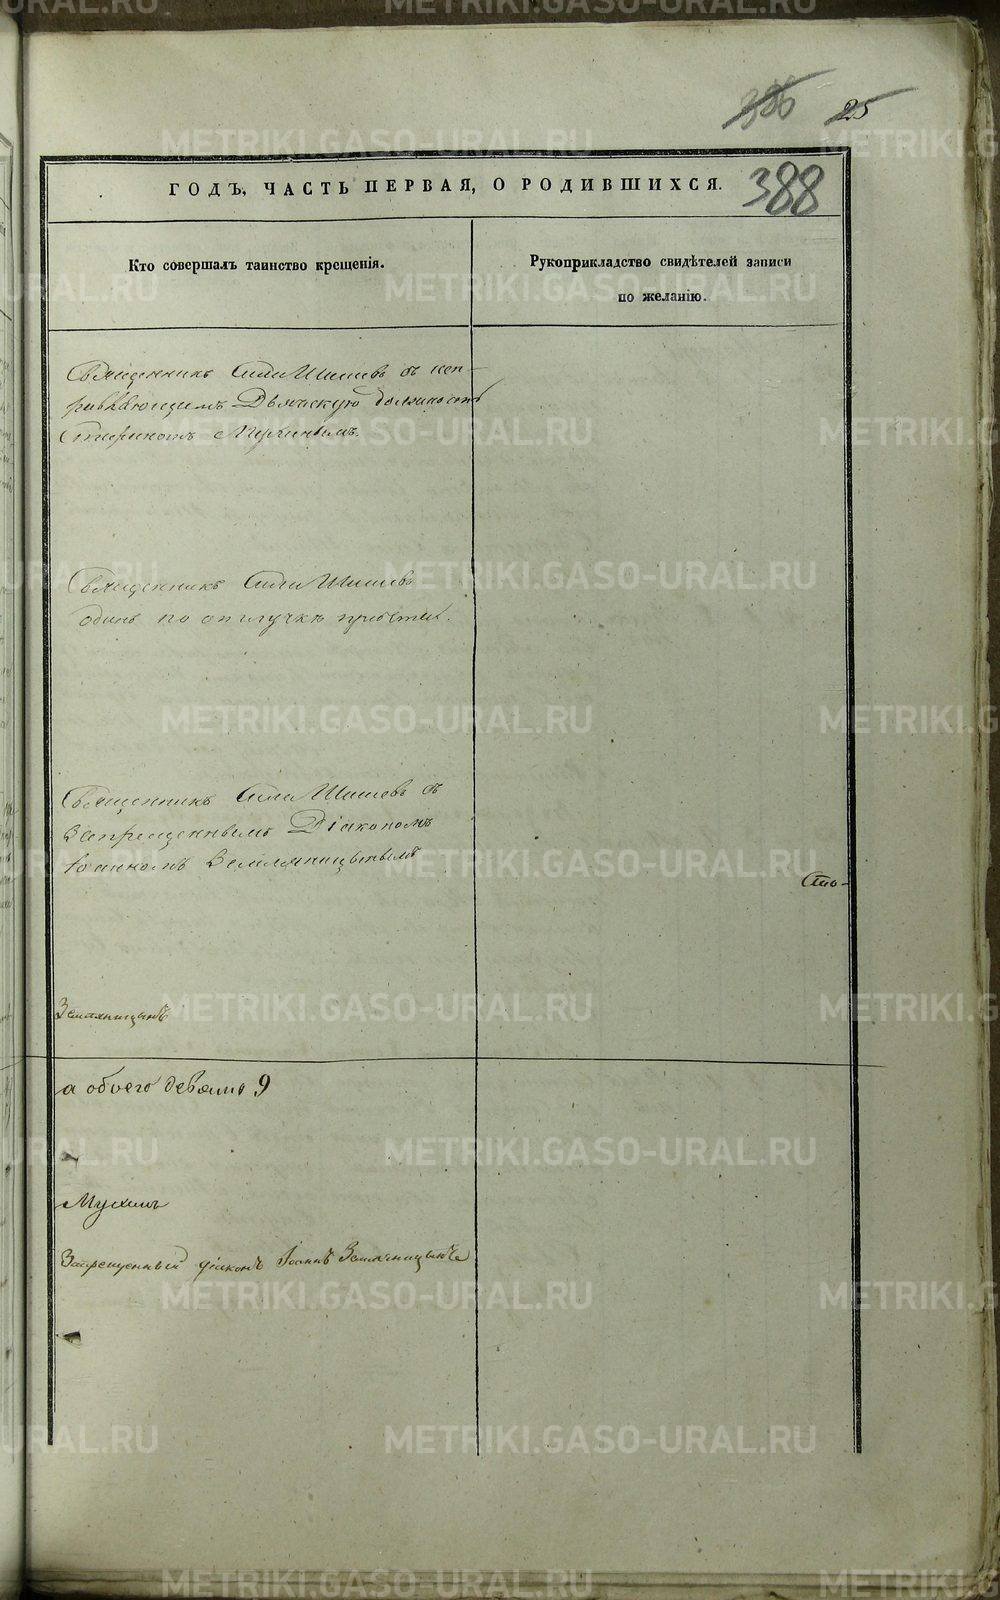 386 25
ГОДЪ, ЧАСТЬ ПЕРВАЯ, О РОДИВШИХСЯ.
388
Кто совершалъ таинство крещенія.
Рукоприкладство свидѣтелей записи
по желанію.
Священникъ Сила Шишевъ съ исп-
равляющимъ Дьяческую должность
Священникъ Сила Шишевъ
одинъ по отлучкѣ причта.
Священникъ Сила Шишевъ съ
Запрещеннымъ Діакономъ
Іоанномъ Земляницынымъ
Сло-
Земляницынъ
а обоего девять 9
Запрещенный діаконъ Іоаннъ Земляницынъ
METRIKI.GASO-URAL.RU